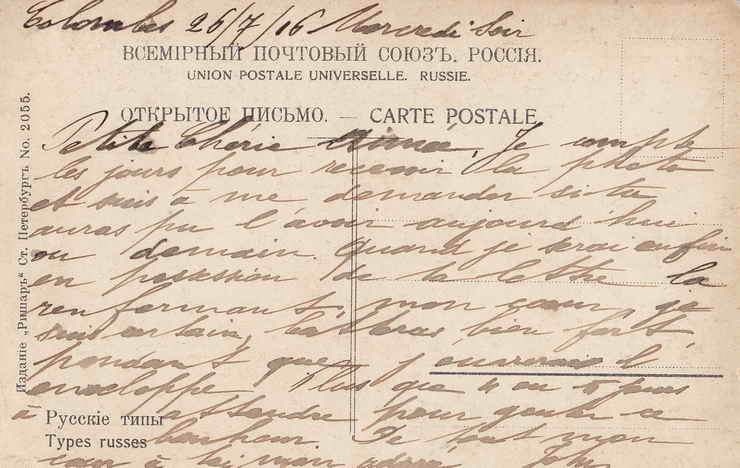 Colombes 26/7/16 Mercredi Soir
ВСЕМІРНЫЙ ПОЧТОВЫЙ СОЮЗЪ. РОССІЯ.
UNION POSTALE UNIVERSELLE. RUSSIE.
ОТКРЫТОЕ ПИСЬМО. — CARTE POSTALE
Изданіе „Ришаръ“ Ст. Петербургъ No. 2055.
Petite Chérie aimée, Je compte
les jours pour recevoir la photo
et suis à me demander si tu
auras pu l'avoir aujourd'hui
ou demain. Quand je serai enfin
en possession de la lettre la
renfermant, mon cœur, je
suis certain, battra bien fort
pendant que j'ouvrirais l'
enveloppe. Plus que 4 ou 5 jours
à attendre pour goûter ce
bonheur. Je tout mon
cœur à toi mon adoré
Русскіе типы
Types russes